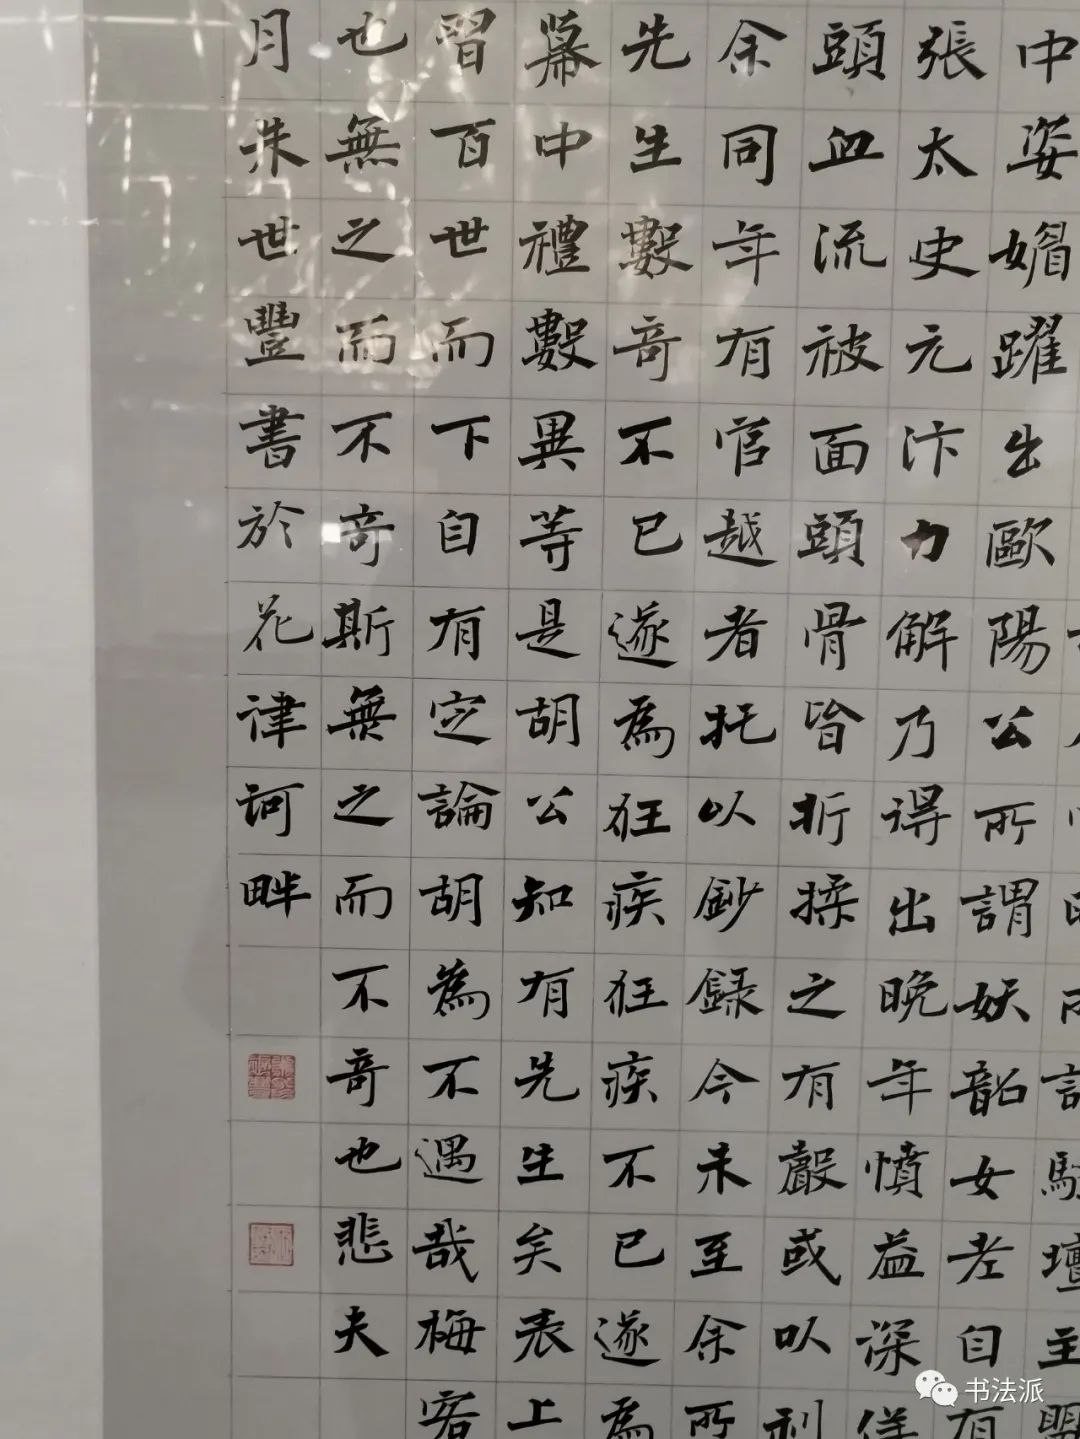 中姿媚躍出歐陽公所謂妖韶女老自有
張太史元汴力解乃得出晚年憤益深佯
頭血流被面頭骨皆折揉之有聲或以利
余同年有官越者托以鈔録今未至余所
先生數奇不已遂為狂疾狂疾不已遂為
幕中禮數異等是胡公知有先生矣表上
晳百世而下自有定論胡為不遇哉梅客
也無之而不奇斯無之而不奇也悲夫
月朱世豐書於花律訶畔
书法派